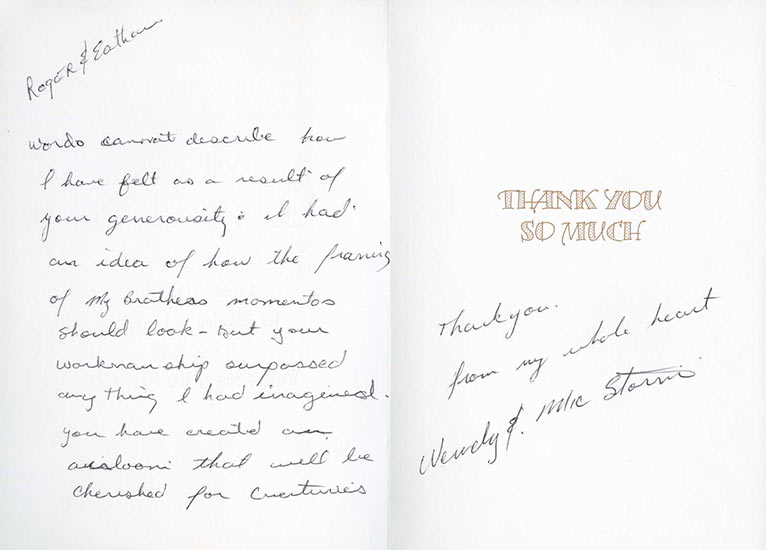 Roger &
words cannot describe how
I have felt as a result of
your generousity. I had
an idea of how the framing
of My Brothers momentos
should look - but your
workmanship surpassed
any thing I had imagined.
you have created an
that will be
cherished for Centuries
THANK YOU
SO MUCH
Thank you.
from my whole heart
Wendy &